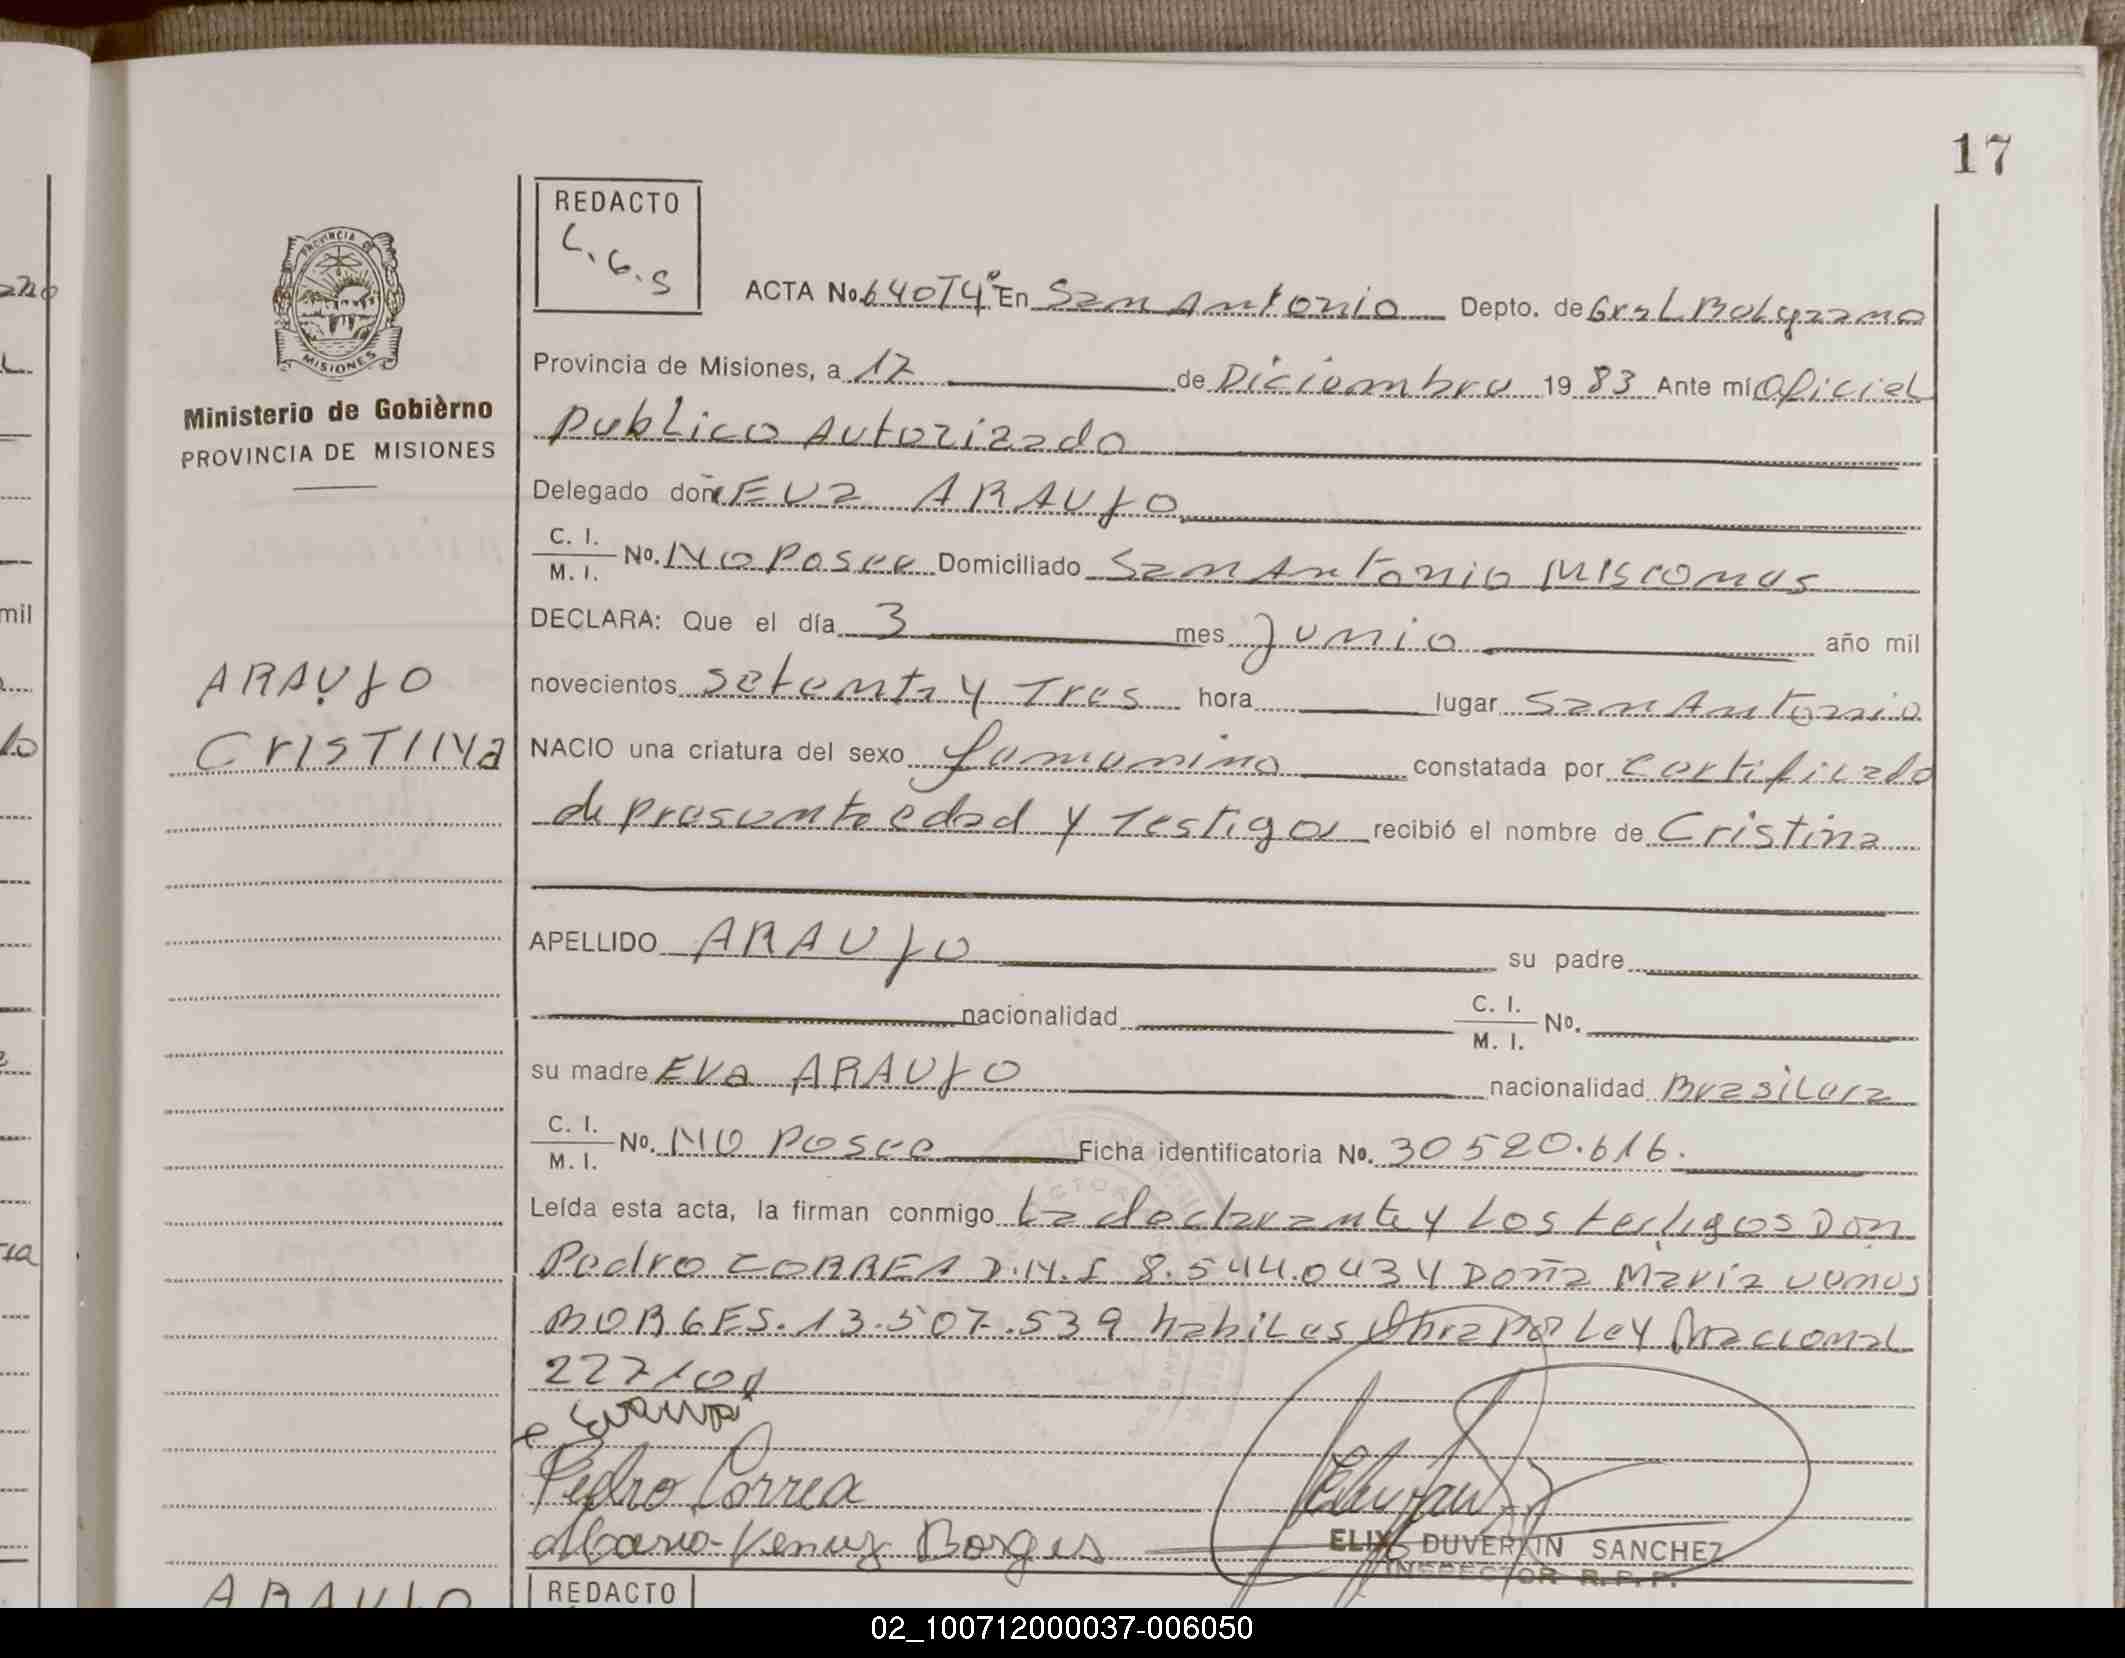 17
REDACTO
L.G.S
PROVINCIA DE
MISIONES
Ministerio de Gobièrno
PROVINCIA DE MISIONES
ACTA No. 640T4º En San Antonio Depto. de Gral Belgrano
Provincia de Misiones, a 17 de Diciembre 19 83 Ante mí Oficial
Publico Autorizado
Delegado doña EVA ARAUJO
C. I.
M. I. No. No Posee Domiciliado San Antonio Misiones
DECLARA: Que el día 3 mes Junio año mil
novecientos setenta y Tres hora lugar San Antonio
ARAUJO
CRISTINa
NACIO una criatura del sexo femenino constatada por certificado
de presunta edad y Testigos recibió el nombre de Cristina
APELLIDO ARAUJO su padre
nacionalidad C. I.
M. I. No.
su madre Eva ARAUJO nacionalidad Brasilera
C. I.
M. I. No. No Posee Ficha identificatoria No. 30520.616.
Leída esta acta, la firman conmigo La declarante y Los testigos Don
Pedro CORREA D.N.I 8.544.043 y Doña Maria Venus
BORGES. 13.507.539 habiles Obra por Ley Nacional
Pedro Correa
Maria Venuz Borges
ELIX DUVERLIN SANCHEZ
INSPECTOR R.P.P.
ARAUJO
REDACTO
mil
02_100712000037-006050